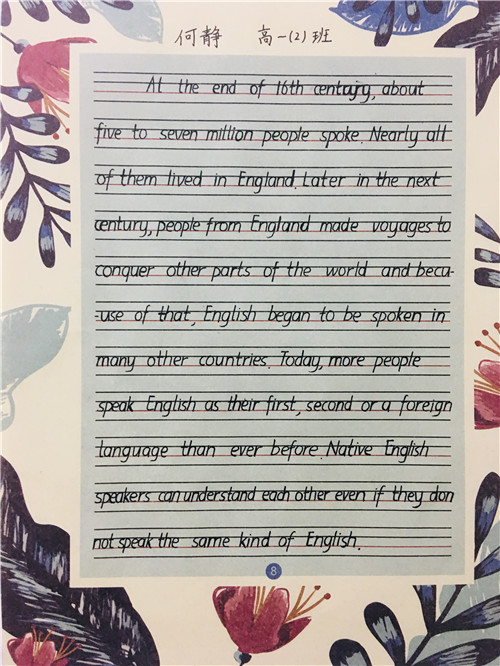 何静 高一(2)班
At the end of 16th century, about
five to seven million people spoke. Nearly all
of them lived in England. Later in the next
century, people from England made voyages to
conquer other parts of the world and becu-
-use of that, English began to be spoken in
many other countries. Today, more people
speak English as their first, second or a foreign
language than ever before. Native English
speakers can understand each other even if they don
not speak the same kind of English.
8